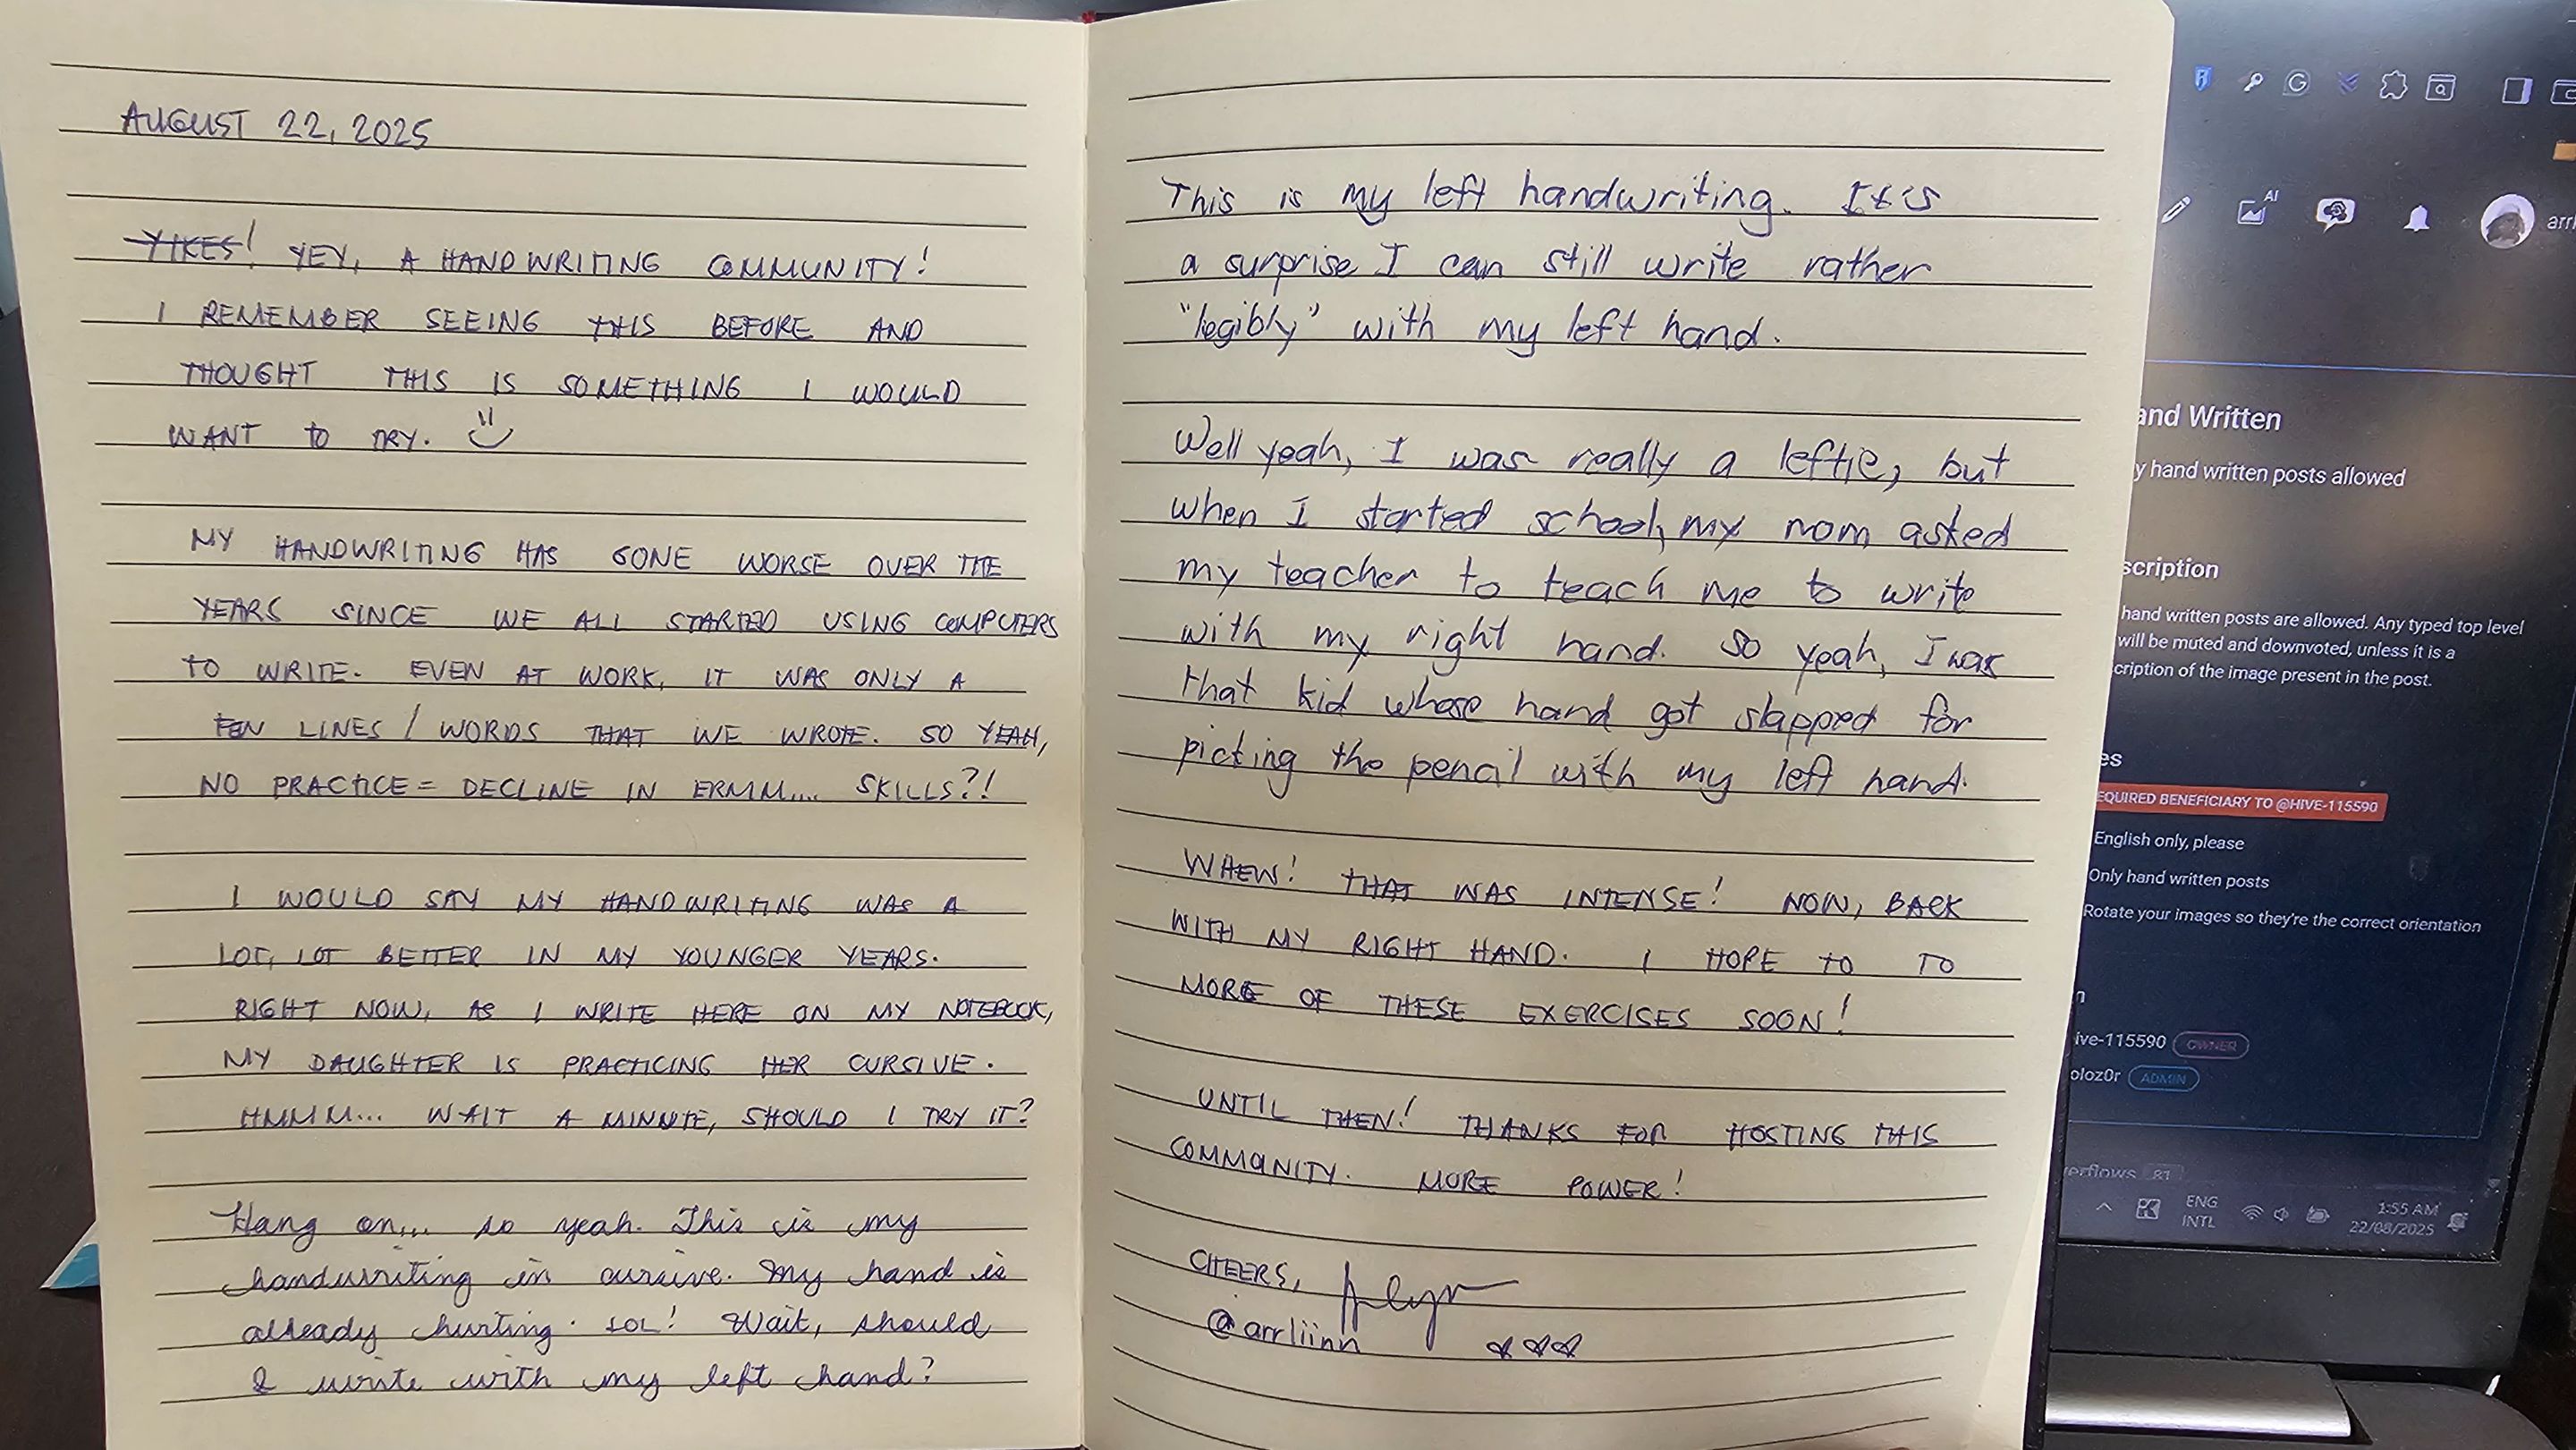 AUGUST 22, 2025
YIKES! YEY, A HANDWRITING COMMUNITY!
I REMEMBER SEEING THIS BEFORE AND
THOUGHT THIS IS SOMETHING I WOULD
WANT TO TRY.
MY HANDWRITING HAS GONE WORSE OVER THE
YEARS SINCE WE ALL STARTED USING COMPUTERS
TO WRITE. EVEN AT WORK, IT WAS ONLY A
FEW LINES / WORDS THAT WE WROTE. SO YEAH,
NO PRACTICE = DECLINE IN ERMM.... SKILLS?!
I WOULD SAY MY HANDWRITING WAS A
LOT, LOT BETTER IN MY YOUNGER YEARS.
RIGHT NOW, AS I WRITE HERE ON MY NOTEBOOK,
MY DAUGHTER IS PRACTICING HER CURSIVE.
HMMM... WAIT A MINUTE, SHOULD I TRY IT?
Hang on... so yeah. This is my
handwriting in cursive. My hand is
already hurting. LOL! Wait, should
I write with my left hand?
This is my left handwriting. It's
a surprise I can still write rather
"legibly" with my left hand.
Well yeah, I was really a leftie, but
when I started school, my mom asked
my teacher to teach me to write
with my right hand. So yeah, I was
that kid whose hand got slapped for
picking the pencil with my left hand.
WHEW! THAT WAS INTENSE! NOW, BACK
WITH MY RIGHT HAND. I HOPE TO TO
MORE OF THESE EXERCISES SOON!
UNTIL THEN! THANKS FOR HOSTING THIS
COMMUNITY. MORE POWER!
CHEERS,
@arrliinn
AI
arrl
and Written
y hand written posts allowed
scription
hand written posts are allowed. Any typed top level
will be muted and downvoted, unless it is a
cription of the image present in the post.
es
EQUIRED BENEFICIARY TO @HIVE-115590
English only, please
Only hand written posts
Rotate your images so they're the correct orientation
n
ive-115590 OWNER
oloz0r ADMIN
erflows 81
ENG
INTL
1:55 AM
22/08/2025